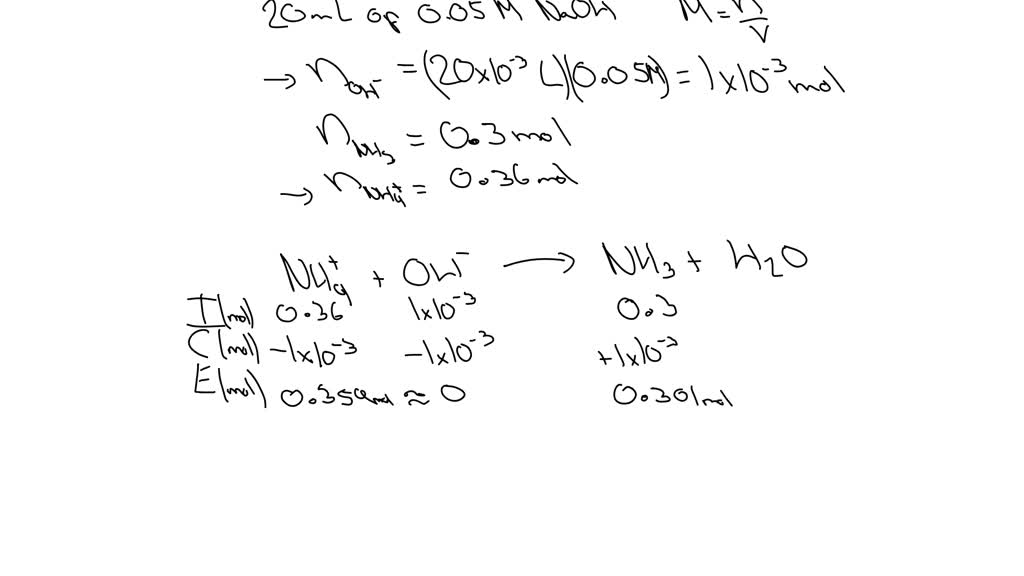 20mL of 0.05M NaOH M = n/V
→ n_OH⁻ = (20x10⁻³ L)(0.05M) = 1x10⁻³ mol
n_NH₃ = 0.3mol
→ n_NH₄⁺ = 0.36mol
NH₄⁺ + OH⁻ → NH₃ + H₂O
I(mol) 0.36 1x10⁻³ 0.3
C(mol) -1x10⁻³ -1x10⁻³ +1x10⁻³
E(mol) 0.359mol ≈ 0 0.301mol